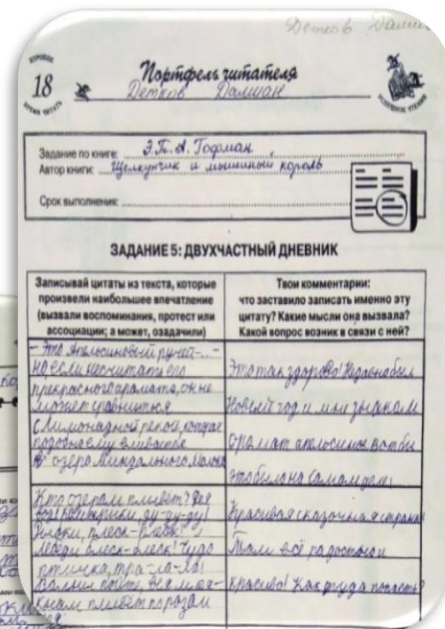 Детков Дамиан
ХОРОШЕЕ
18
ВРЕМЯ ЧИТАТЬ
Портфель читателя
Детков Дамиан
Задание по книге: Э.Т.А. Гофман
Автор книги: Щелкунчик и мышиный король
Срок выполнения:
ЗАДАНИЕ 5: ДВУХЧАСТНЫЙ ДНЕВНИК
Записывай цитаты из текста, которые
произвели наибольшее впечатление
(вызвали воспоминания, протест или
ассоциации; а может, озадачили)
Твои комментарии:
что заставило записать именно эту
цитату? Какие мысли она вызвала?
Какой вопрос возник в связи с ней?
- Это Апельсиновый ручей -...-
но если не считать его
прекрасного аромата, он не
может сравниться
с Лимонадной рекой, которая
подобно ему вливается
В озеро Миндального Молока
Это так здорово! Недавно был
Новый год и мы знаком
аромат апельсина вот бы
это было на самом деле!
Кто озером плывет? Фея
воды! комарики, ду-ду-ду!
Рыбки, плеск-плеск!
Лебеди блеск-блеск! Чудо
птичка, тра-ла-ла!
Красивая сказочная страна
Там всё радостно и
красиво! Как туда попасть?